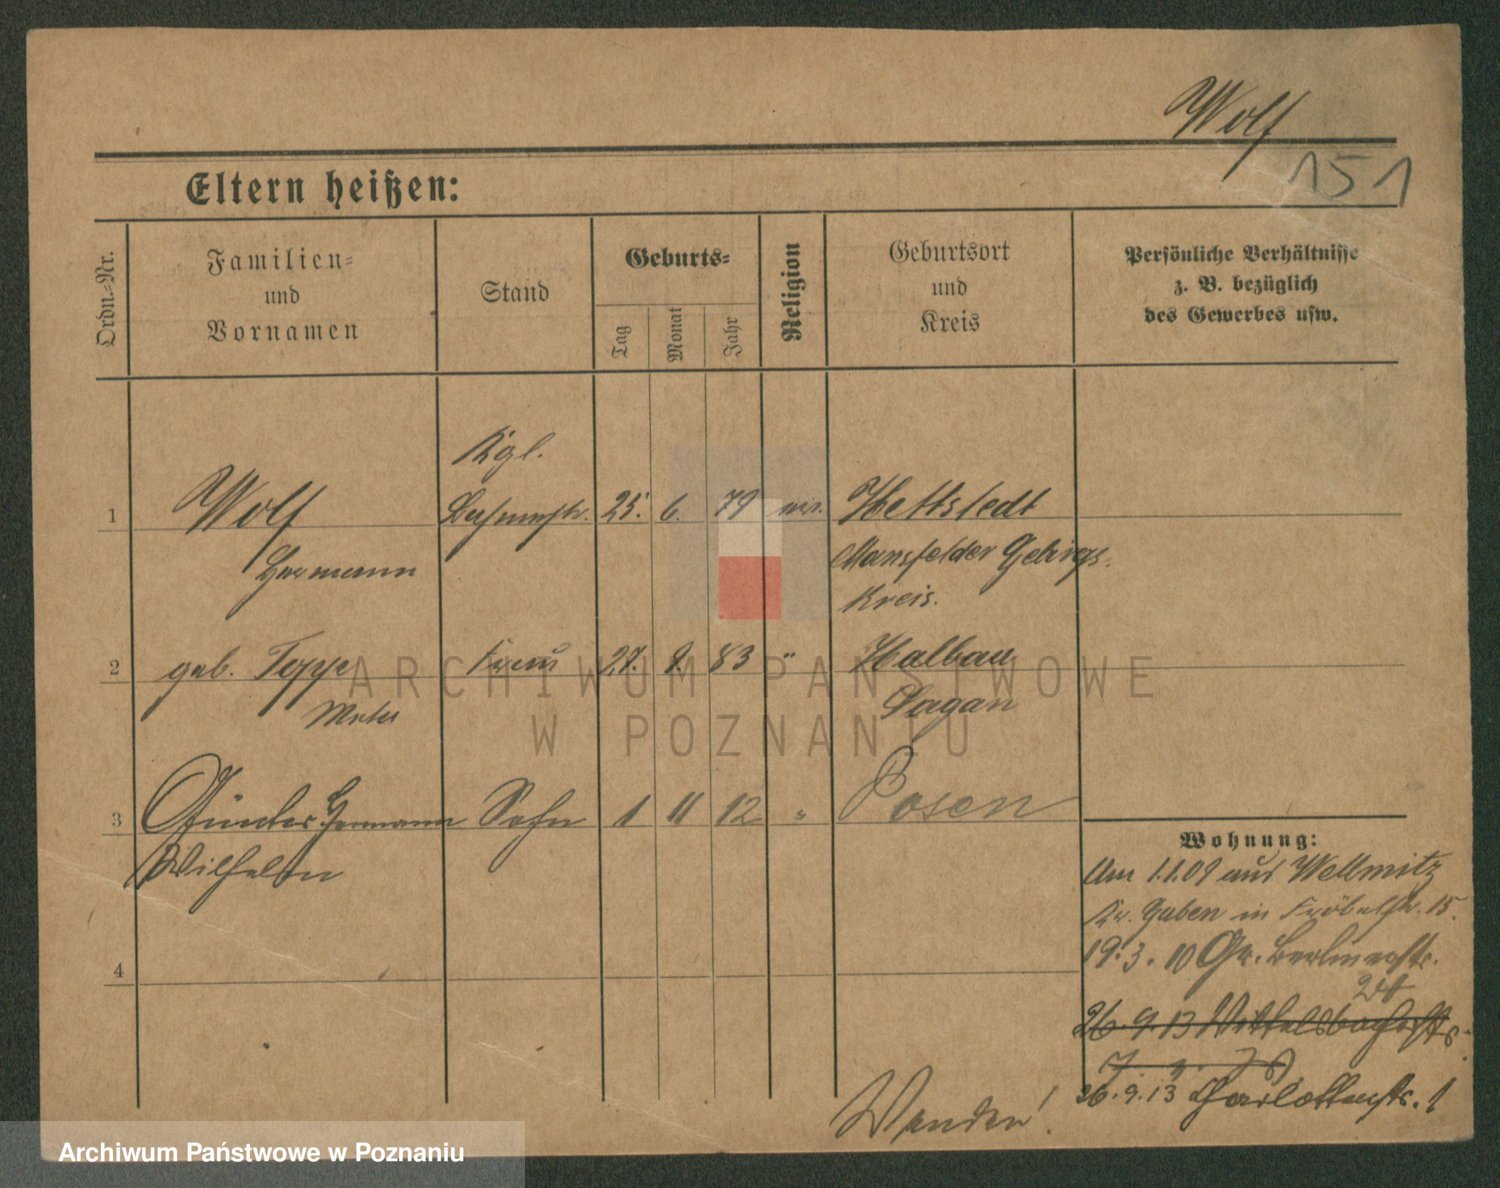 Wolf
151
Eltern heißen:
Ordn.-Nr.
Familien-
und
Vornamen
Stand
Geburts-
Tag
Monat
Jahr
Religion
Geburtsort
und
Kreis
Persönliche Verhältnisse
z. B. bezüglich
des Gewerbes usw.
Kgl.
1 Wolf 25. 6. 79 Hettstedt
Hermann Mansfelder Gebirgs.
Kreis.
2 geb. Frau 27. 9. 83 " Halbau
Sagan
3 Günther Hermann Sohn 1 11 12 " Posen
Wilhelm
4
Wohnung:
Am 1.1.09 aus Wellmitz
Kr. Guben in Fröbelstr. 15.
19.3.10 Gr. Berlinerstr.
26.9.13 Wittelsbacherstr.
26.9.13 Charlottenstr. 1
Wenden!
ARCHIWUM PAŃSTWOWE
W POZNANIU
Archiwum Państwowe w Poznaniu